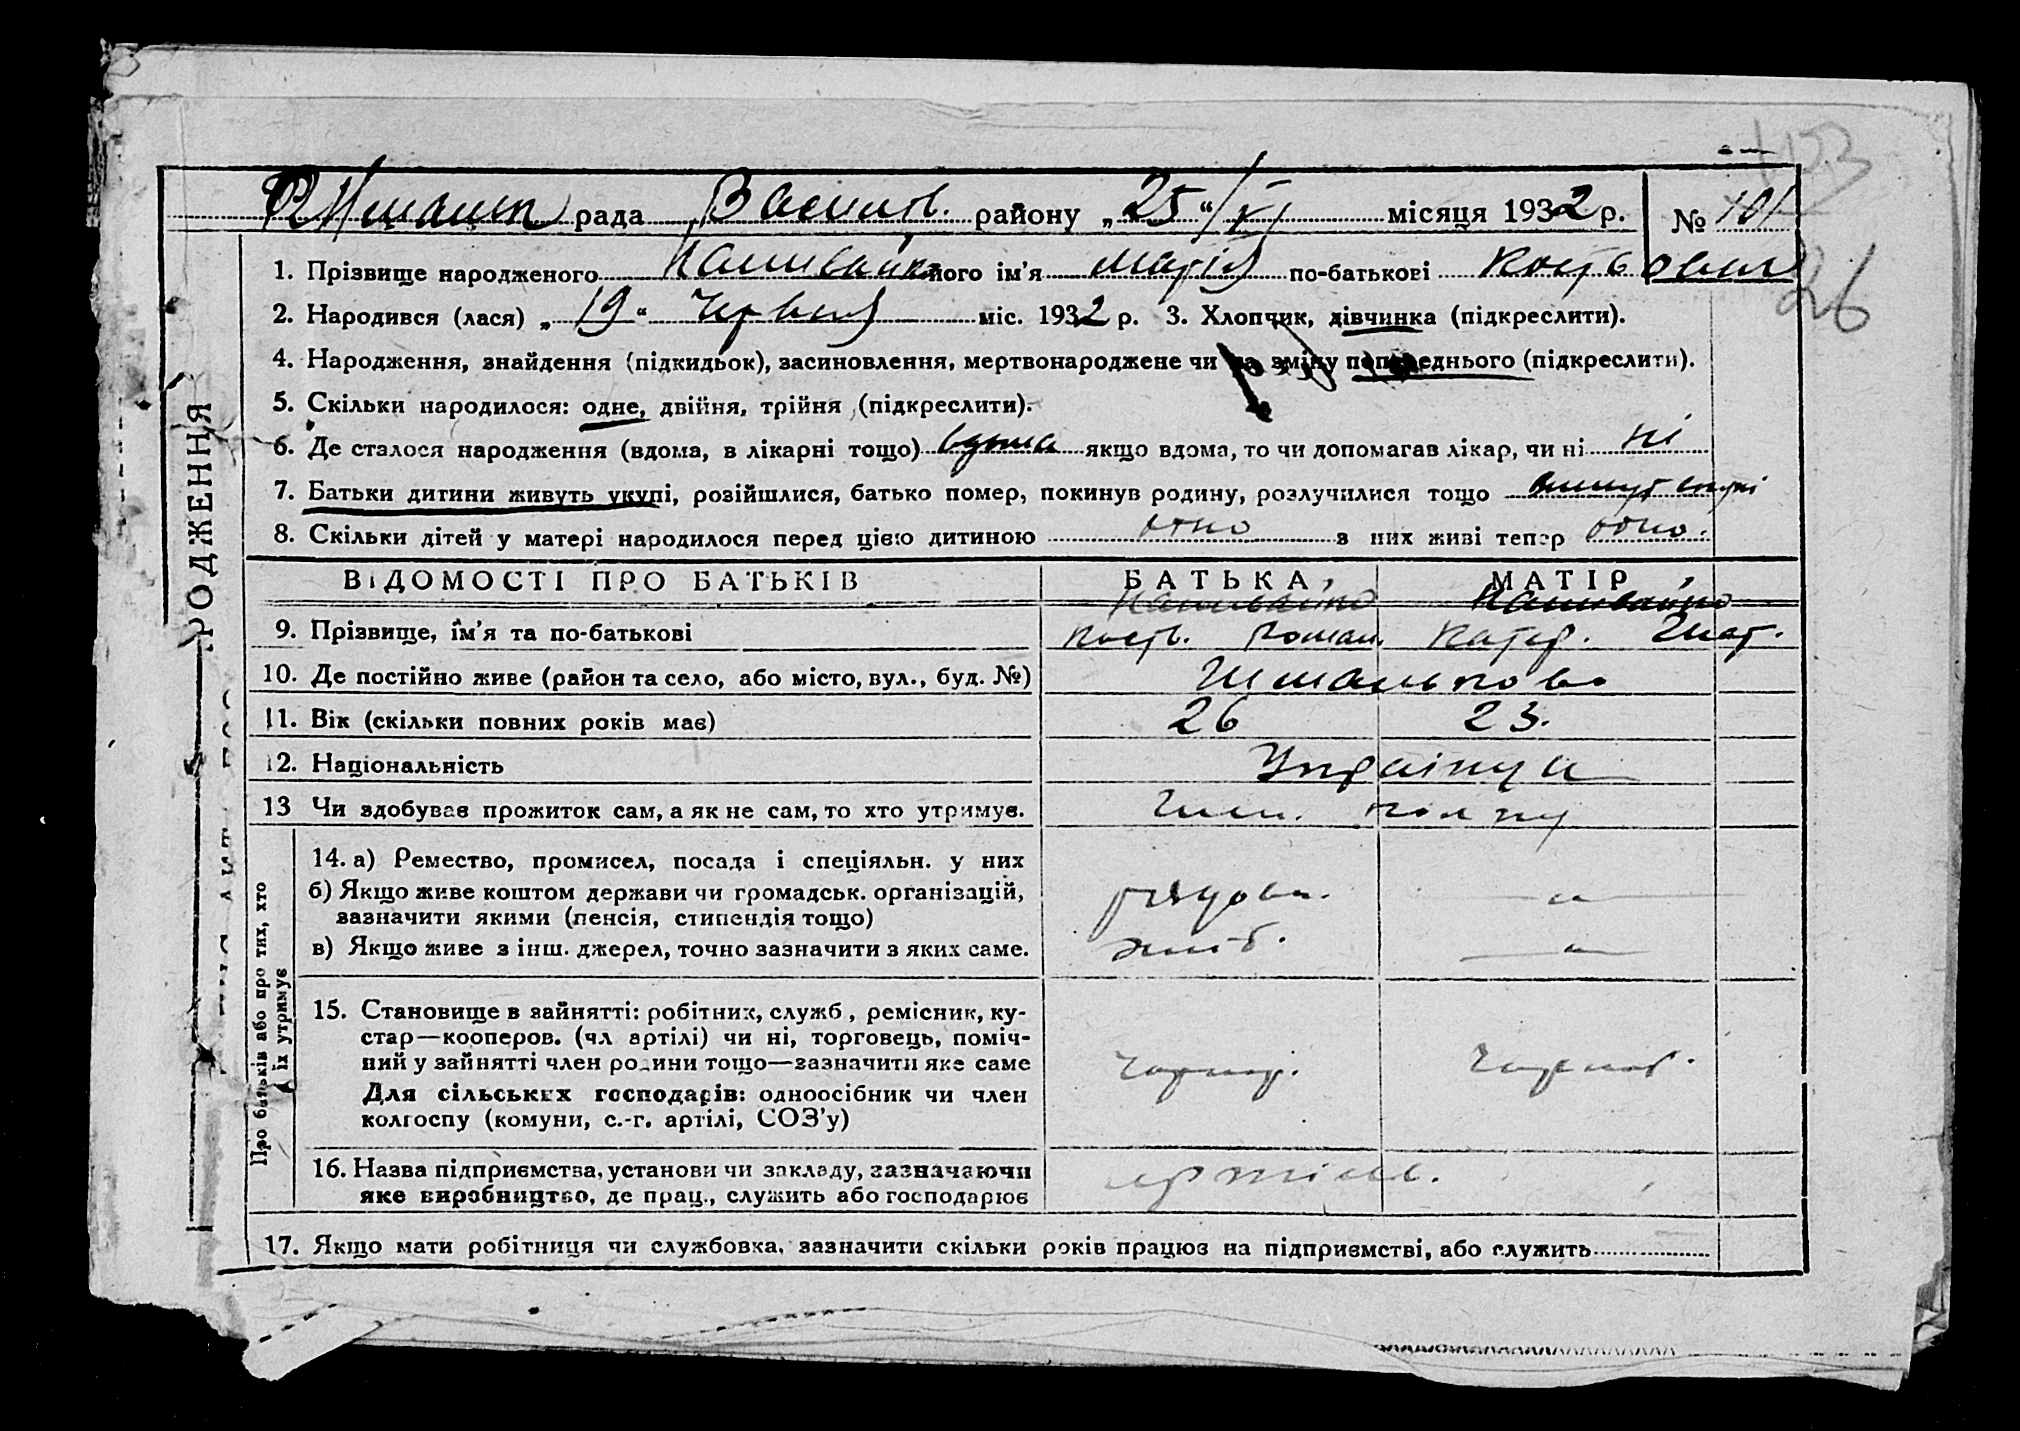 рада Васильк. району „25“ VI місяця 1932 р. № 101
1. Прізвище народженого Наливайко його ім’я Марія по-батькові Костьовна
26
2. Народився (лася) „19“ Червня міс. 1932 р. 3. Хлопчик, дівчинка (підкреслити).
4. Народження, знайдення (підкидьок), засиновлення, мертвонароджене чи на зміну попереднього (підкреслити).
5. Скільки народилося: одне, двійня, трійня (підкреслити).
6. Де сталося народження (вдома, в лікарні тощо) вдома якщо вдома, то чи допомагав лікар, чи ні ні
7. Батьки дитини живуть укупі, розійшлися, батько помер, покинув родину, розлучилися тощо живут вкупі
8. Скільки дітей у матері народилося перед цією дитиною одно з них живі тепер одно.
РОДЖЕННЯ
ВІДОМОСТІ ПРО БАТЬКІВ БАТЬКА МАТІР
Наливайко Наливайко
9. Прізвище, ім’я та по-батькові Кость. Роман. Катер. Гнат.
10. Де постійно живе (район та село, або місто, вул., буд. №)
11. Вік (скільки повних років має) 26 23.
12. Національність Українці
13 Чи здобував прожиток сам, а як не сам, то хто утримує.
Про батьків або про тих, хто їх утримує
14. а) Ремество, промисел, посада і спеціяльн. у них
б) Якщо живе коштом держави чи громадськ. організацій,
зазначити якими (пенсія, стипендія тощо) рядов.
в) Якщо живе з інш. джерел, точно зазначити з яких саме.
15. Становище в зайнятті: робітник, служб., ремісник, ку-
стар—кооперов. (чл артілі) чи ні, торговець, поміч-
ний у зайнятті член родини тощо—зазначити яке саме
Для сільських господарів: одноосібник чи член
колгоспу (комуни, с.-г. артілі, СОЗ’у)
16. Назва підприємства, установи чи закладу, зазначаючи
яке виробництво, де прац., служить або господарює артіль.
17. Якщо мати робітниця чи службовка, зазначити скільки років працює на підприємстві, або служить